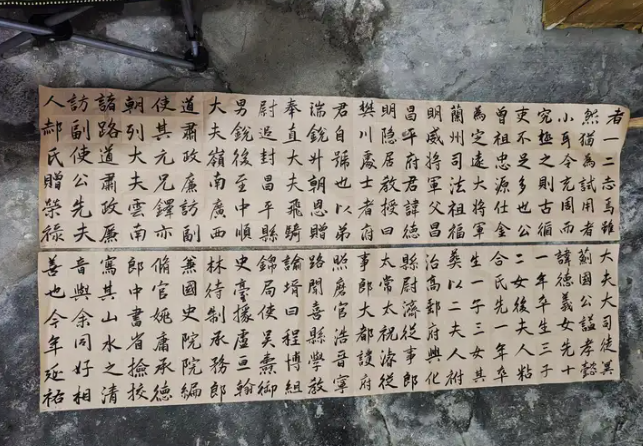 者一二志馬雖
然猶為試用者
小耳令充周而
究極之則古循
吏不足多也公
曾祖忠源仕金
為定遠大將軍
蘭州司法祖福
明威將軍父昌
昌平府君諱德
明隱居教授曰
樊川處士者府
君自號也以弟
瑞銳升朝恩贈
奉直大夫飛騎
尉追封昌平縣
男銳後至中順
大夫嶺南廣西
道肅政廉訪副
使其元兄鐸亦
朝列大夫雲南
諸路道肅政廉
訪副使公先夫
人郝氏贈榮祿
大夫大司徒冀
薊國公謚孝懿
諱德義女先十
一年卒生三子
二女後夫人粘
合氏先一年卒
葬以二夫人祔
生一子三女其
治高郵府興化
縣尉濟從事郎
太常太祝濤從
事郎大都護府
照磨官浩晉寧
路聞喜縣學教
諭壻曰程博組
錦局使吳燾御
史臺掾盧亘翰
林待制承務郎
兼國史院編
脩官姚庸承德
郎中書省檢校
寓其山水之清
音與余同好相
善也今年延祐